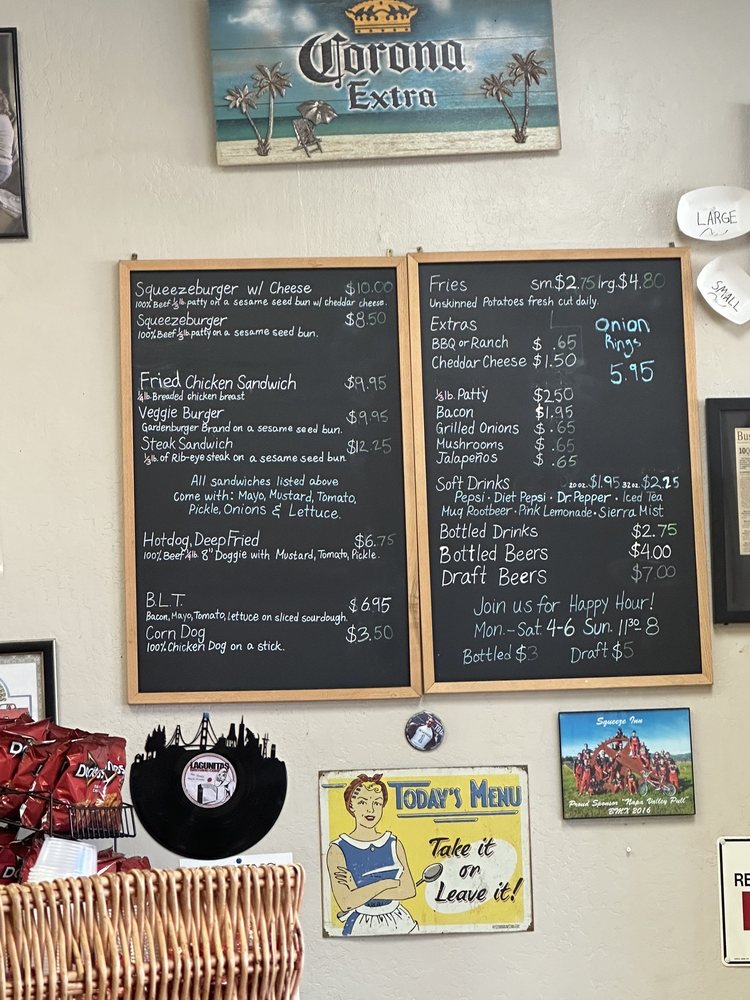 Corona
Extra
LARGE
SMALL
Squeezeburger w/ Cheese $10.00
100% Beef ⅓ lb. patty on a sesame seed bun w/ cheddar cheese.
Squeezeburger $8.50
100% Beef ⅓ lb. patty on a sesame seed bun.
Fried Chicken Sandwich $9.95
¼ lb. Breaded chicken breast
Veggie Burger $9.95
Gardenburger Brand on a sesame seed bun.
Steak Sandwich $12.25
⅓ lb. of Rib-eye steak on a sesame seed bun.
All sandwiches listed above
come with: Mayo, Mustard, Tomato,
Pickle, Onions & Lettuce.
Hotdog, Deep Fried $6.75
100% Beef ¼ lb. 8" Doggie with Mustard, Tomato, Pickle.
B.L.T. $6.95
Bacon, Mayo, Tomato, Lettuce on sliced sourdough.
Corn Dog $3.50
100% Chicken Dog on a stick.
Fries sm.$2.75 lrg.$4.80
Unskinned Potatoes fresh cut daily.
Extras
BBQ or Ranch $ .65
Cheddar Cheese $1.50
Onion
Rings
5.95
⅓ lb. Patty $2.50
Bacon $1.95
Grilled Onions $ .65
Mushrooms $ .65
Jalapeños $ .65
Soft Drinks 20 oz. $1.95 32 oz. $2.25
Pepsi · Diet Pepsi · Dr. Pepper · Iced Tea
Mug Rootbeer · Pink Lemonade · Sierra Mist
Bottled Drinks $2.75
Bottled Beers $4.00
Draft Beers $7.00
Join us for Happy Hour!
Mon.-Sat. 4-6 Sun. 11:30-8
Bottled $3 Draft $5
Doritos
LAGUNITAS
TODAY'S MENU
Take it
or
Leave it!
Squeeze Inn
Proud Sponsor "Napa Valley Pull"
BMX 2016
RE